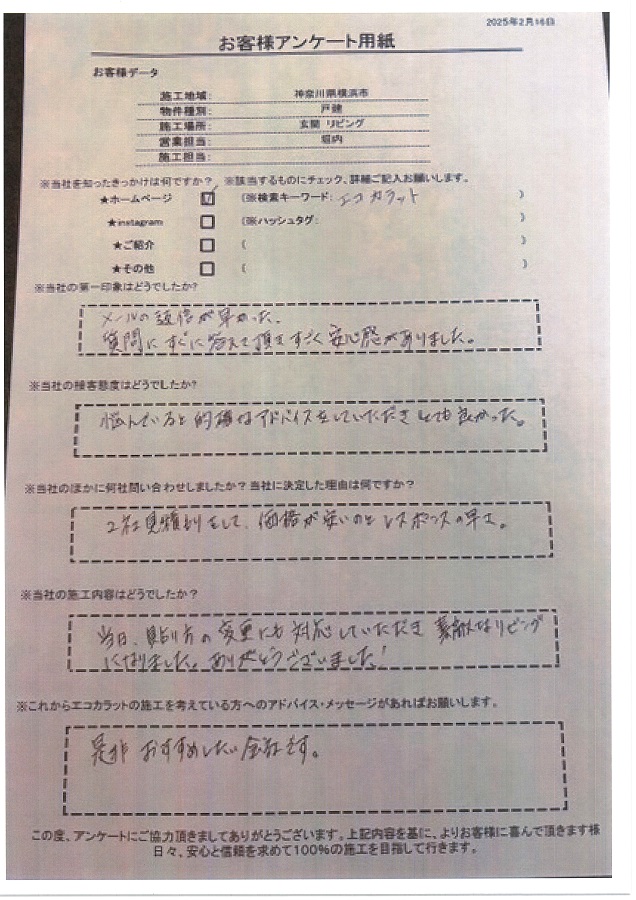 2025年2月16日
お客様アンケート用紙
お客様データ
施工地域: 神奈川県横浜市
物件種別: 戸建
施工場所: 玄関 リビング
営業担当: 堀内
施工担当:
※当社を知ったきっかけは何ですか? ※該当するものにチェック、詳細ご記入お願いします。
★ホームページ ☑ (※検索キーワード: エコカラット )
★instagram □ (※ハッシュタグ: )
★ご紹介 □ ( )
★その他 □ ( )
※当社の第一印象はどうでしたか?
メールの返信が早かった、
質問にすぐに答えて頂きすごく安心感がありました。
※当社の接客態度はどうでしたか?
悩んでいると的確なアドバイスをしていただきとても良かった。
※当社のほかに何社問い合わせしましたか?当社に決定した理由は何ですか?
2社見積りをして、価格が安いのとレスポンスの早さ。
※当社の施工内容はどうでしたか?
当日、貼り方の変更にも対応していただき 素敵なリビング
になりました。ありがとうございました!
※これからエコカラットの施工を考えている方へのアドバイス・メッセージがあればお願いします。
是非 おすすめしたい会社です。
この度、アンケートにご協力頂きましてありがとうございます。上記内容を基に、よりお客様に喜んで頂きます様
日々、安心と信頼を求めて100%の施工を目指して行きます。